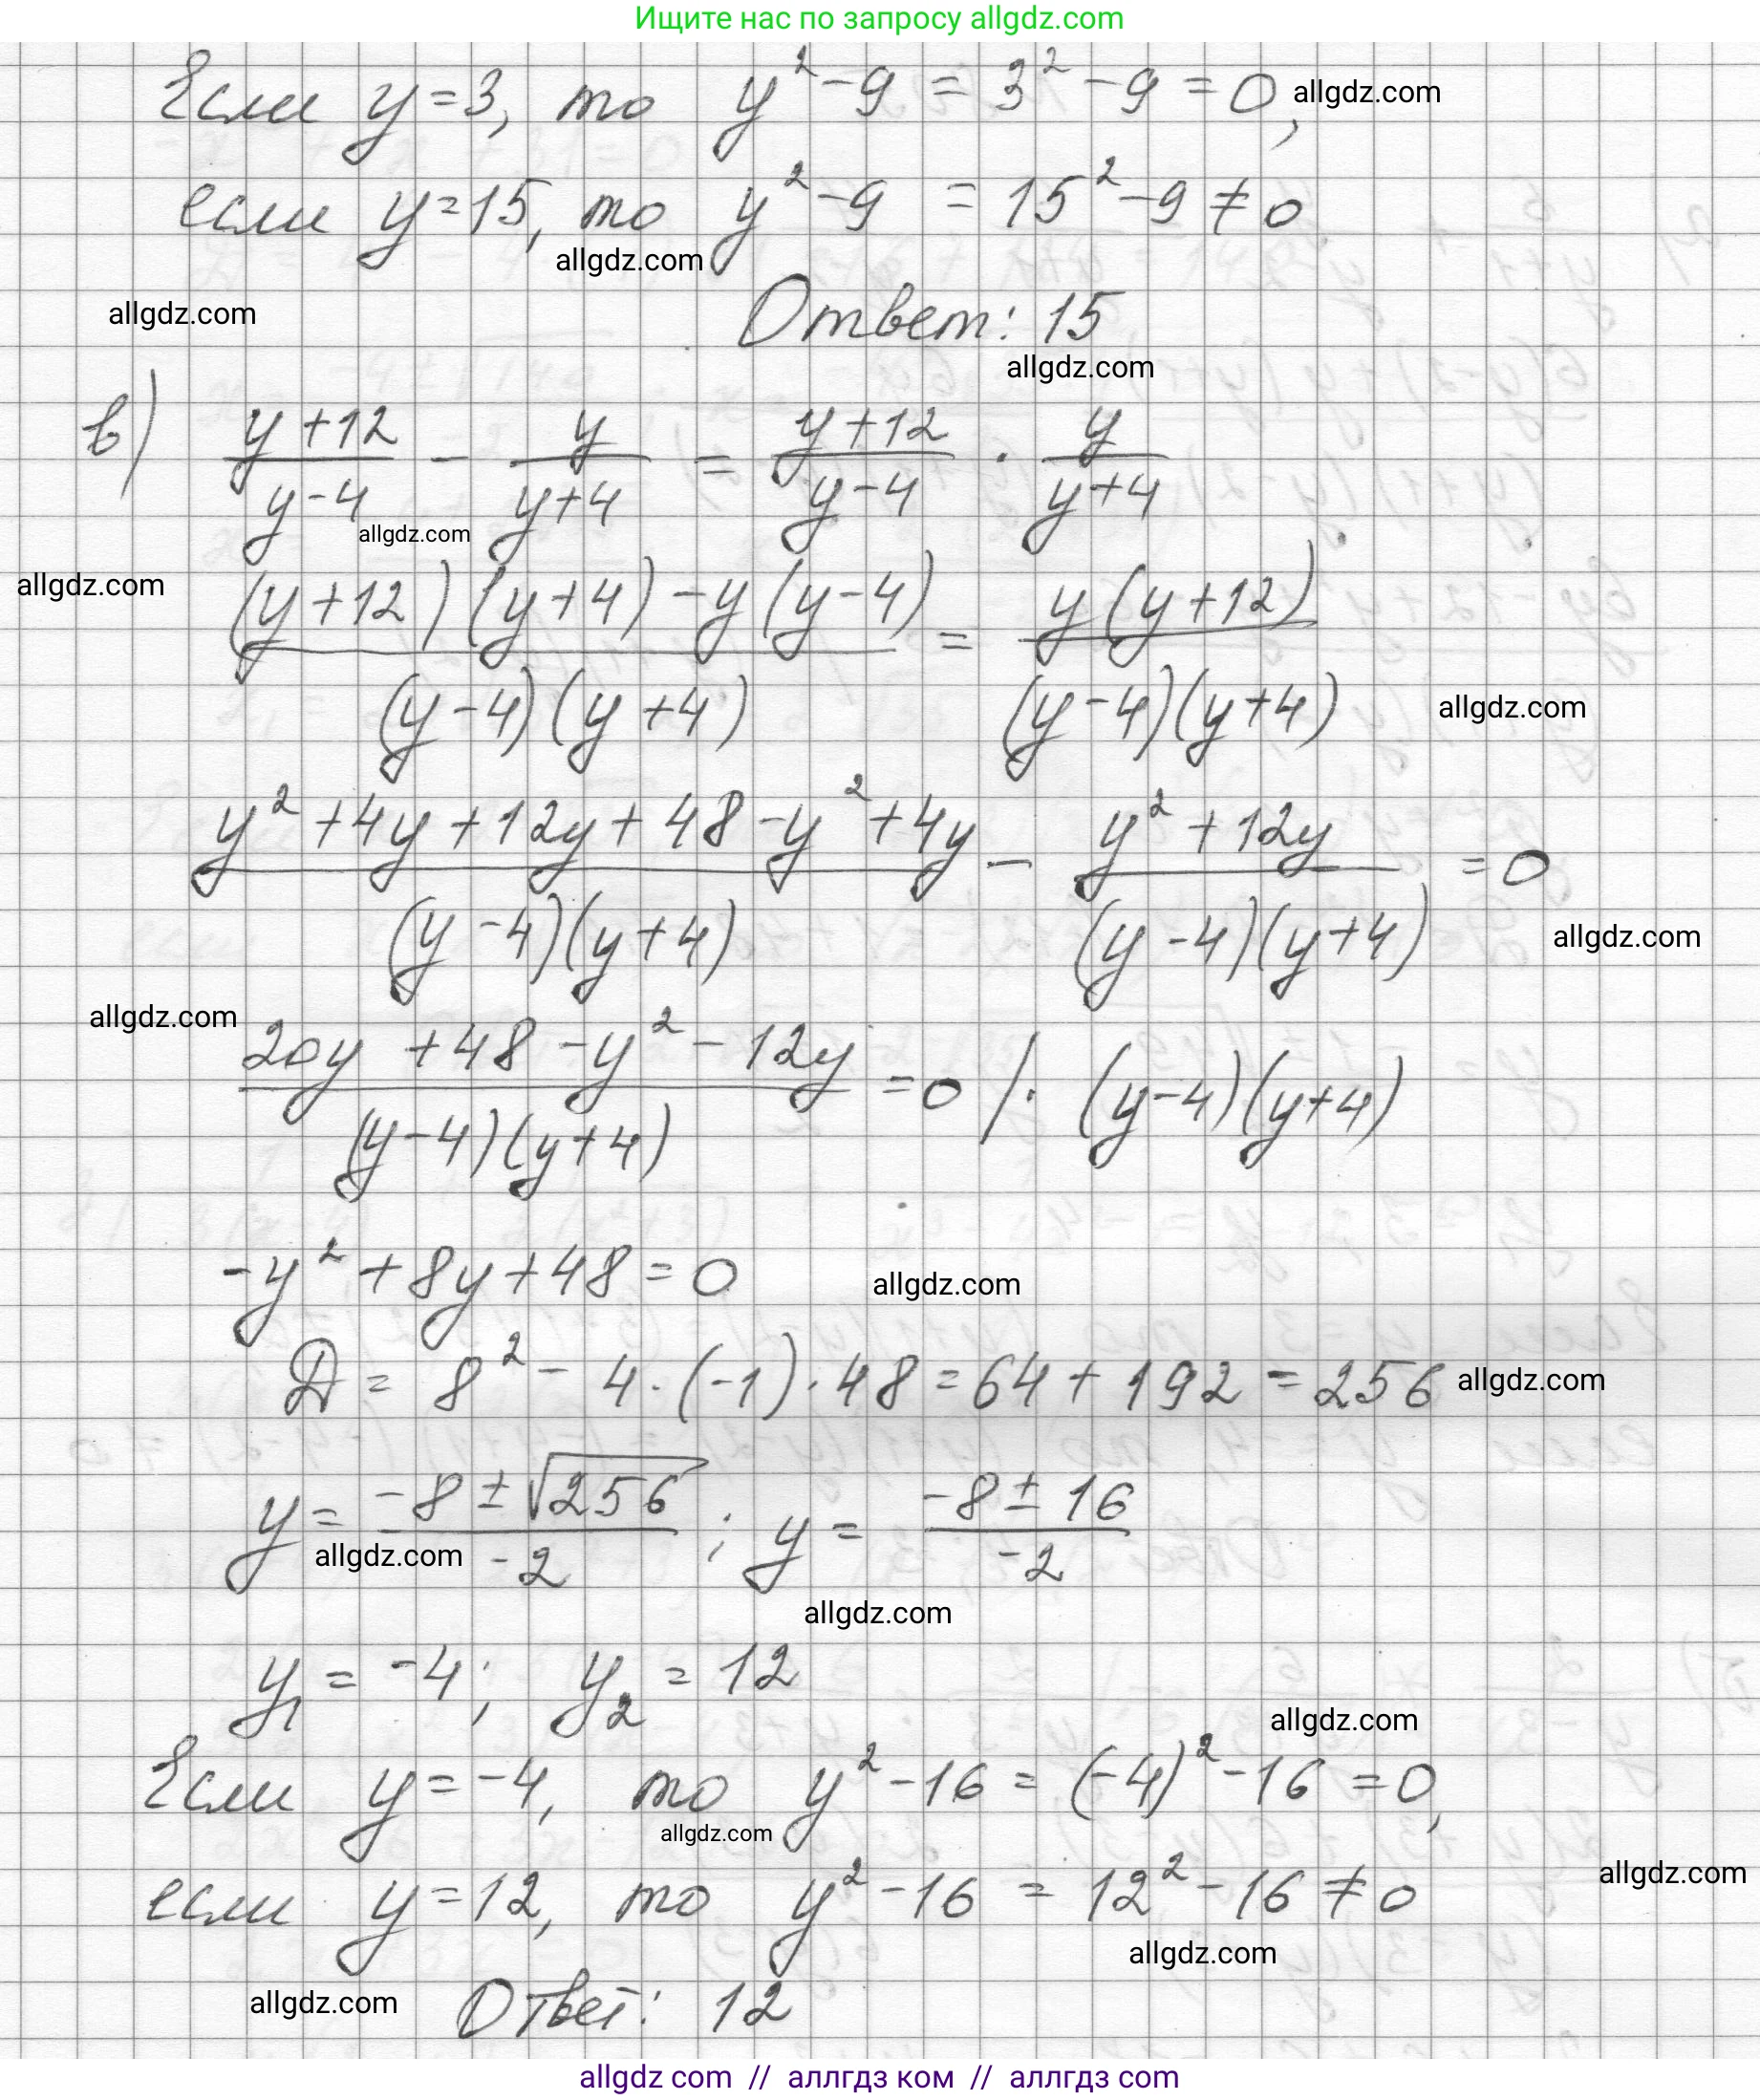 Ищите нас по запросу allgdz.com
Если y=3, то y²-9 = 3²-9=0, allgdz.com
если y=15, то y²-9 = 15²-9≠0
allgdz.com
allgdz.com
Ответ: 15
allgdz.com
в) (y+12)/(y-4) - y/(y+4) = (y+12)/(y-4) · y/(y+4)
allgdz.com
allgdz.com
((y+12)(y+4)-y(y-4))/((y-4)(y+4)) = (y(y+12))/((y-4)(y+4))
allgdz.com
(y²+4y+12y+48-y²+4y)/((y-4)(y+4)) - (y²+12y)/((y-4)(y+4)) = 0
allgdz.com
allgdz.com
(20y+48-y²-12y)/((y-4)(y+4)) = 0 /· (y-4)(y+4)
-y²+8y+48=0
allgdz.com
Д = 8² - 4·(-1)·48 = 64+192 = 256 allgdz.com
y = (-8±√256)/(-2); y = (-8±16)/(-2)
allgdz.com
allgdz.com
y₁ = -4; y₂ = 12
allgdz.com
Если y=-4, то y²-16 = (-4)²-16 = 0,
allgdz.com
allgdz.com
если y=12, то y²-16 = 12²-16≠0
allgdz.com
allgdz.com
Ответ: 12
allgdz com // аллгдз ком // аллгдз com